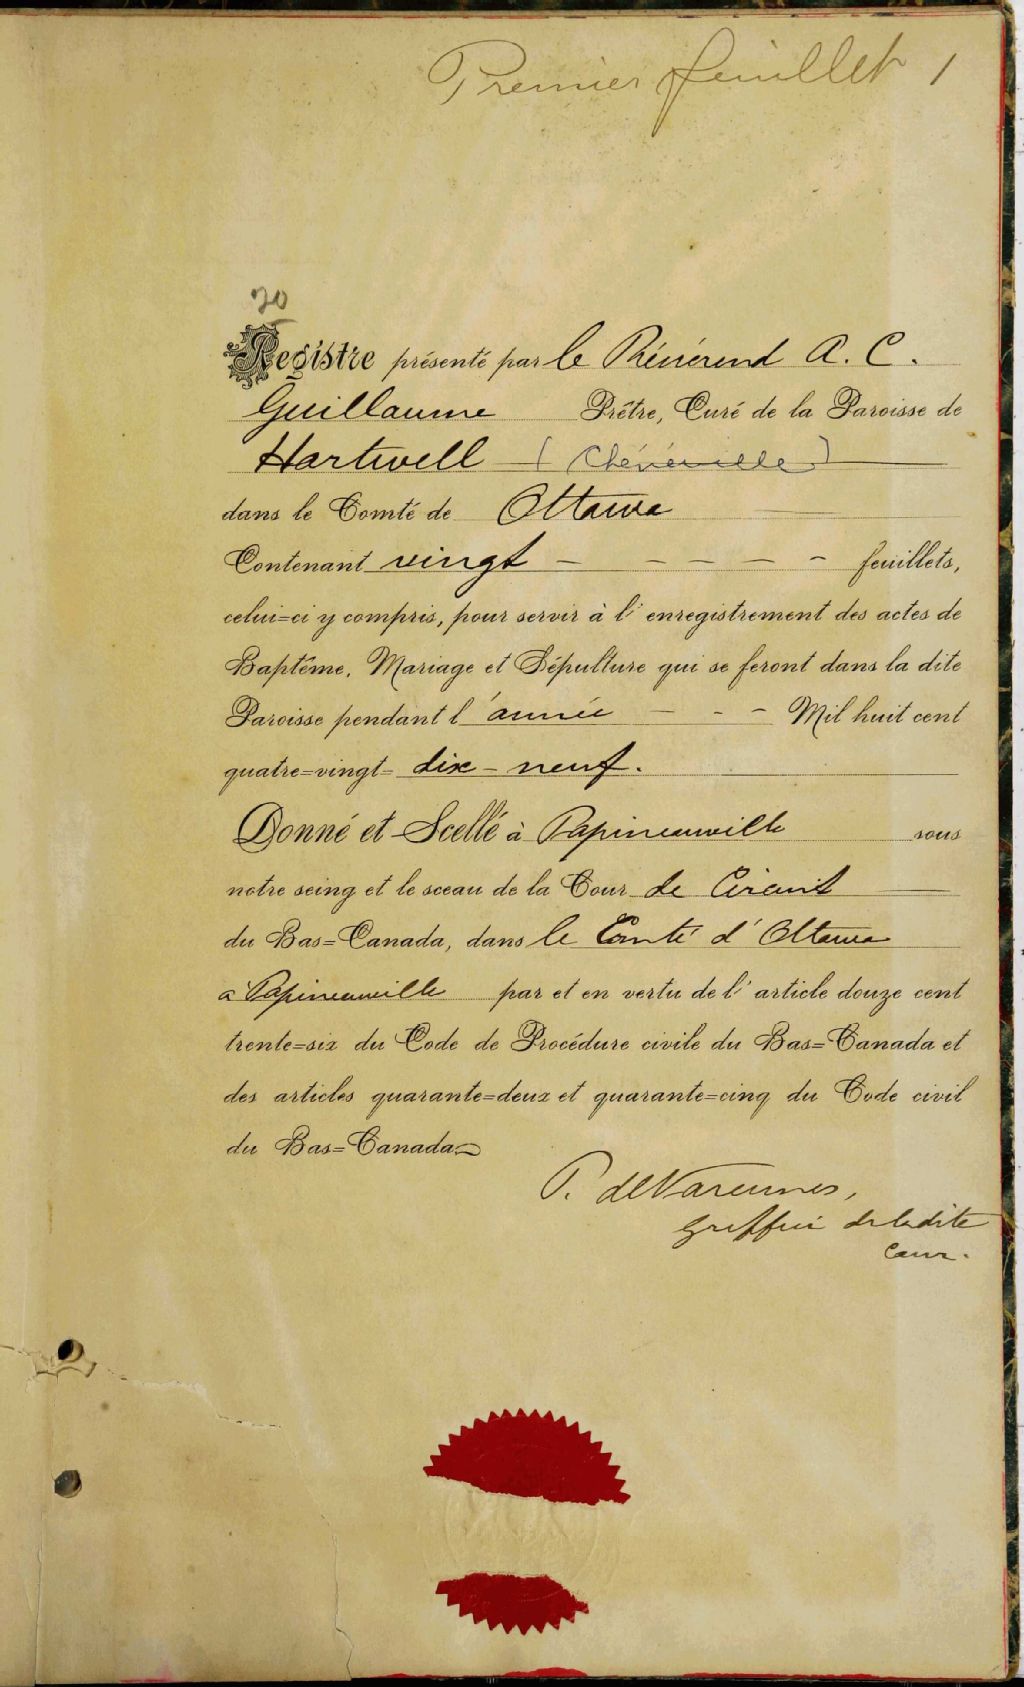 Premier feuillet 1
20
Registre présenté par le Révérend A. C.
Guillaume Prêtre, Curé de la Paroisse de
Hartwell (Chénéville)
dans le Comté de Ottawa
Contenant vingt - - - - - feuillets,
celui=ci y compris, pour servir à l'enregistrement des actes de
Baptême, Mariage et Sépulture qui se feront dans la dite
Paroisse pendant l'année - - - Mil huit cent
quatre=vingt= dix-neuf.
Donné et Scellé à Papineauville sous
notre seing et le sceau de la Cour de Circuit
du Bas=Canada, dans le Comté d'Ottawa
à Papineauville par et en vertu de l'article douze cent
trente=six du Code de Procédure civile du Bas=Canada et
des articles quarante=deux et quarante=cinq du Code civil
du Bas=Canada
P. deVarennes,
Greffier de la dite
Cour.